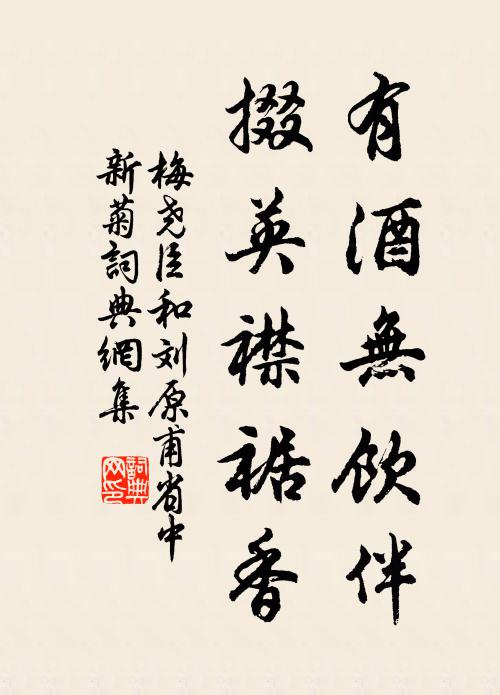 有酒無飲伴
掇英襟裾香
梅尧臣和刘原甫省中
新菊詞典網集
詞典网印